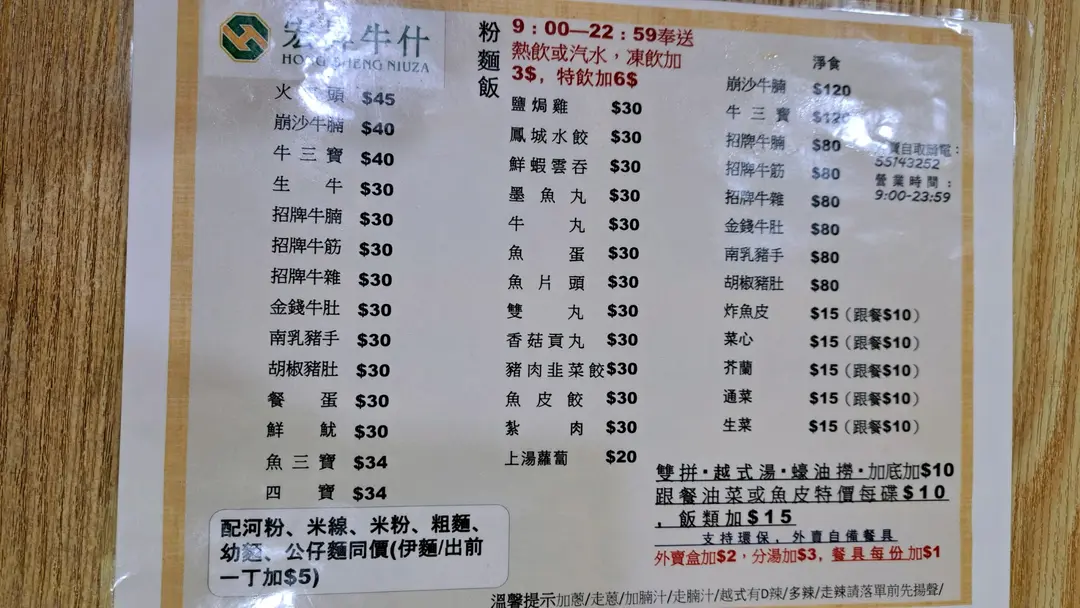 牛什
HONG SHENG NIUZA
火 頭 $45
崩沙牛腩 $40
牛三寶 $40
生牛 $30
招牌牛腩 $30
招牌牛筋 $30
招牌牛雜 $30
金錢牛肚 $30
南乳豬手 $30
胡椒豬肚 $30
餐蛋 $30
鮮魷 $30
魚三寶 $34
四寶 $34
配河粉、米線、米粉、粗麵、
幼麵、公仔麵同價(伊麵/出前
一丁加$5)
粉麵飯
9：00—22：59奉送
熱飲或汽水，凍飲加
3$，特飲加6$
鹽焗雞 $30
鳳城水餃 $30
鮮蝦雲吞 $30
墨魚丸 $30
牛丸 $30
魚蛋 $30
魚片頭 $30
雙丸 $30
香菇貢丸 $30
豬肉韭菜餃 $30
魚皮餃 $30
紮肉 $30
上湯蘿蔔 $20
淨食
崩沙牛腩 $120
牛三寶 $120
招牌牛腩 $80
招牌牛筋 $80
招牌牛雜 $80
金錢牛肚 $80
南乳豬手 $80
胡椒豬肚 $80
炸魚皮 $15（跟餐$10）
菜心 $15（跟餐$10）
芥蘭 $15（跟餐$10）
通菜 $15（跟餐$10）
生菜 $15（跟餐$10）
賣自取 電：
55143252
營業時間：
9:00-23:59
雙拼·越式湯·蠔油撈·加底加$10
跟餐油菜或魚皮特價每碟$10
，飯類加$15
支持環保，外賣自備餐具
外賣盒加$2，分湯加$3，餐具每份加$1
溫馨提示加蔥/走蔥/加腩汁/走腩汁/越式有D辣/多辣/走辣請落單前先揚聲/